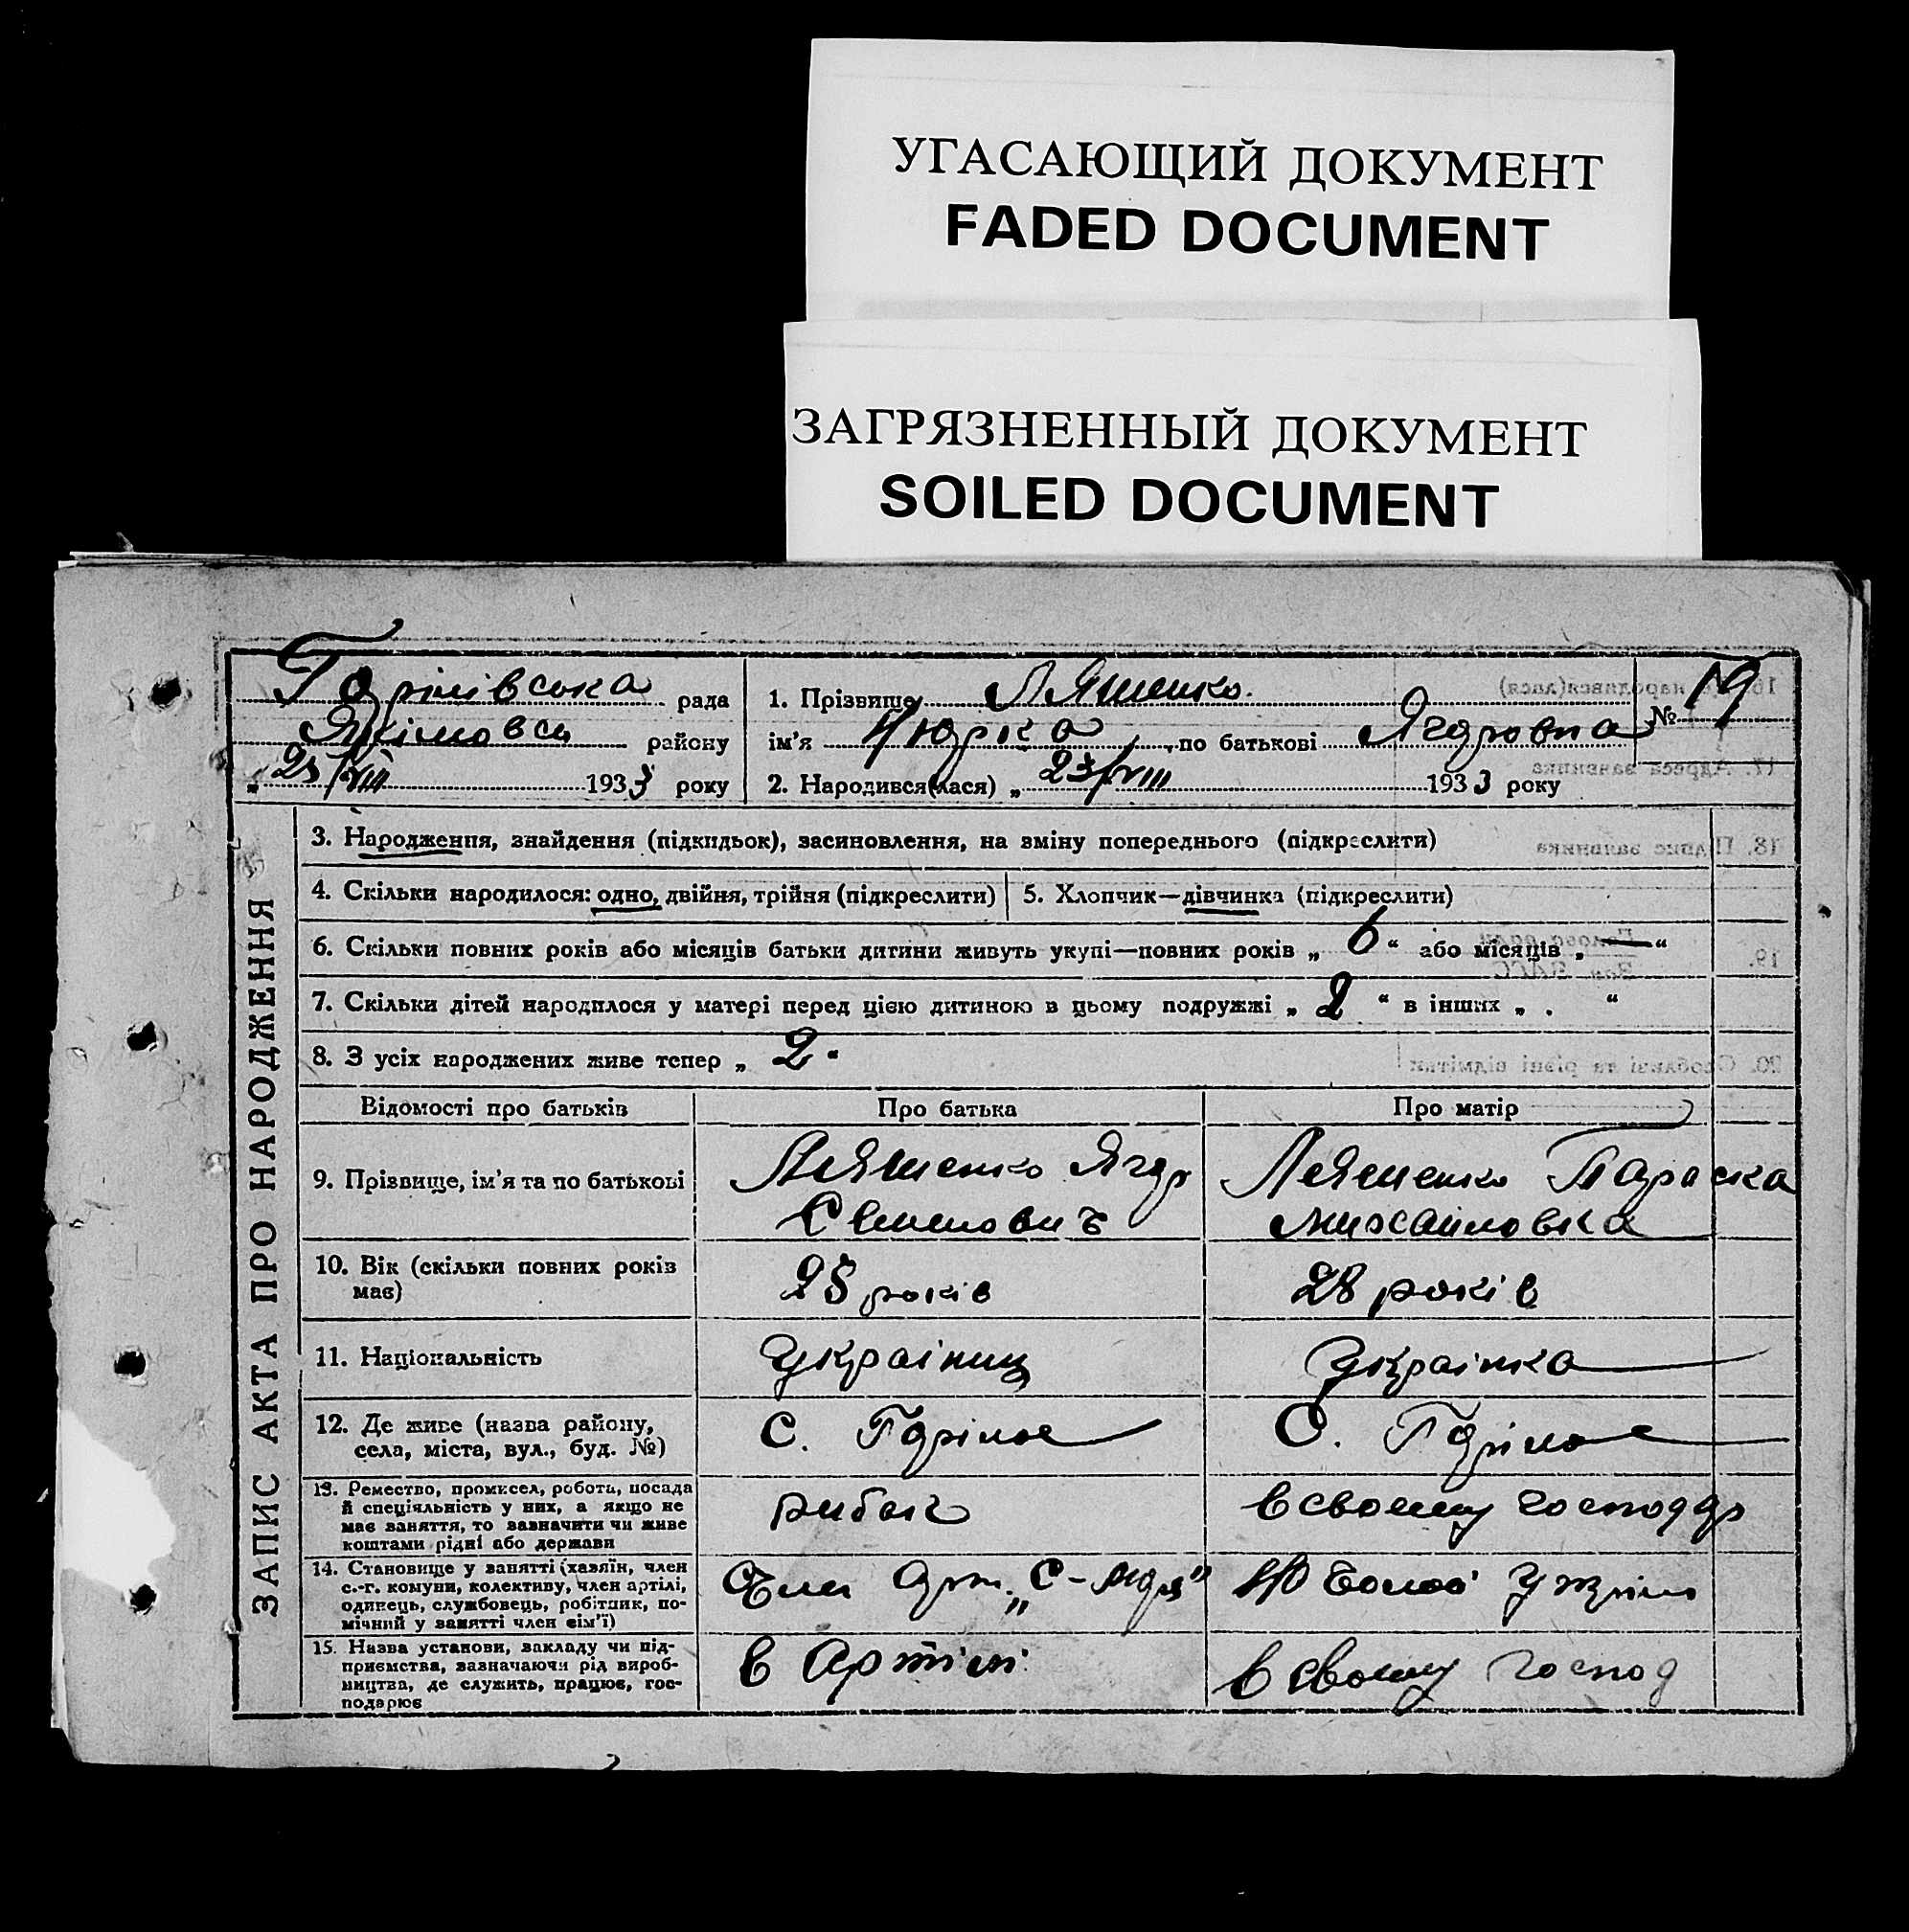 УГАСАЮЩИЙ ДОКУМЕНТ
FADED DOCUMENT
ЗАГРЯЗНЕННЫЙ ДОКУМЕНТ
SOILED DOCUMENT
рада
району
„ 23/VIII 1933 року
1. Прізвище Ляшенко.
ім'я Нюрка по батькові Ягоровна
№ 19
2. Народився(лася) „ 23/VIII 1933 року
ЗАПИС АКТА ПРО НАРОДЖЕННЯ
3. Народження, знайдення (підкидьок), засиновлення, на зміну попереднього (підкреслити)
4. Скільки народилося: одно, двійня, трійня (підкреслити)
5. Хлопчик—дівчинка (підкреслити)
6. Скільки повних років або місяців батьки дитини живуть укупі—повних років „ 6 “ або місяців „ — “
7. Скільки дітей народилося у матері перед цією дитиною в цьому подружжі „ 2 “ в інших „ . “
8. З усіх народжених живе тепер „ 2 “
Відомості про батьків Про батька Про матір
9. Прізвище, ім'я та по батькові
Ляшенко Ягор
Семенович
Ляшенко Параска
Михайловка
10. Вік (скільки повних років
має)
28 років
11. Національність
Українец
Українка
12. Де живе (назва району,
села, міста, вул., буд. №)
С. Горілое
С. Горілое
13. Ремество, промисел, робота, посада
й спеціяльність у них, а якщо не
має заняття, то зазначити чи живе
коштами рідні або держави
рибак
в своему господар
14. Становище у занятті (хазяїн, член
с.-г. комуни, колективу, член артілі,
одинець, службовець, робітник, по-
мічний у занятті член сім'ї)
Член Арт. „С-
15. Назва установи, закладу чи під-
приємства, зазначаючи рід вироб-
ництва, де служить, працює, гос-
подарює
в Артілі
в своему господ